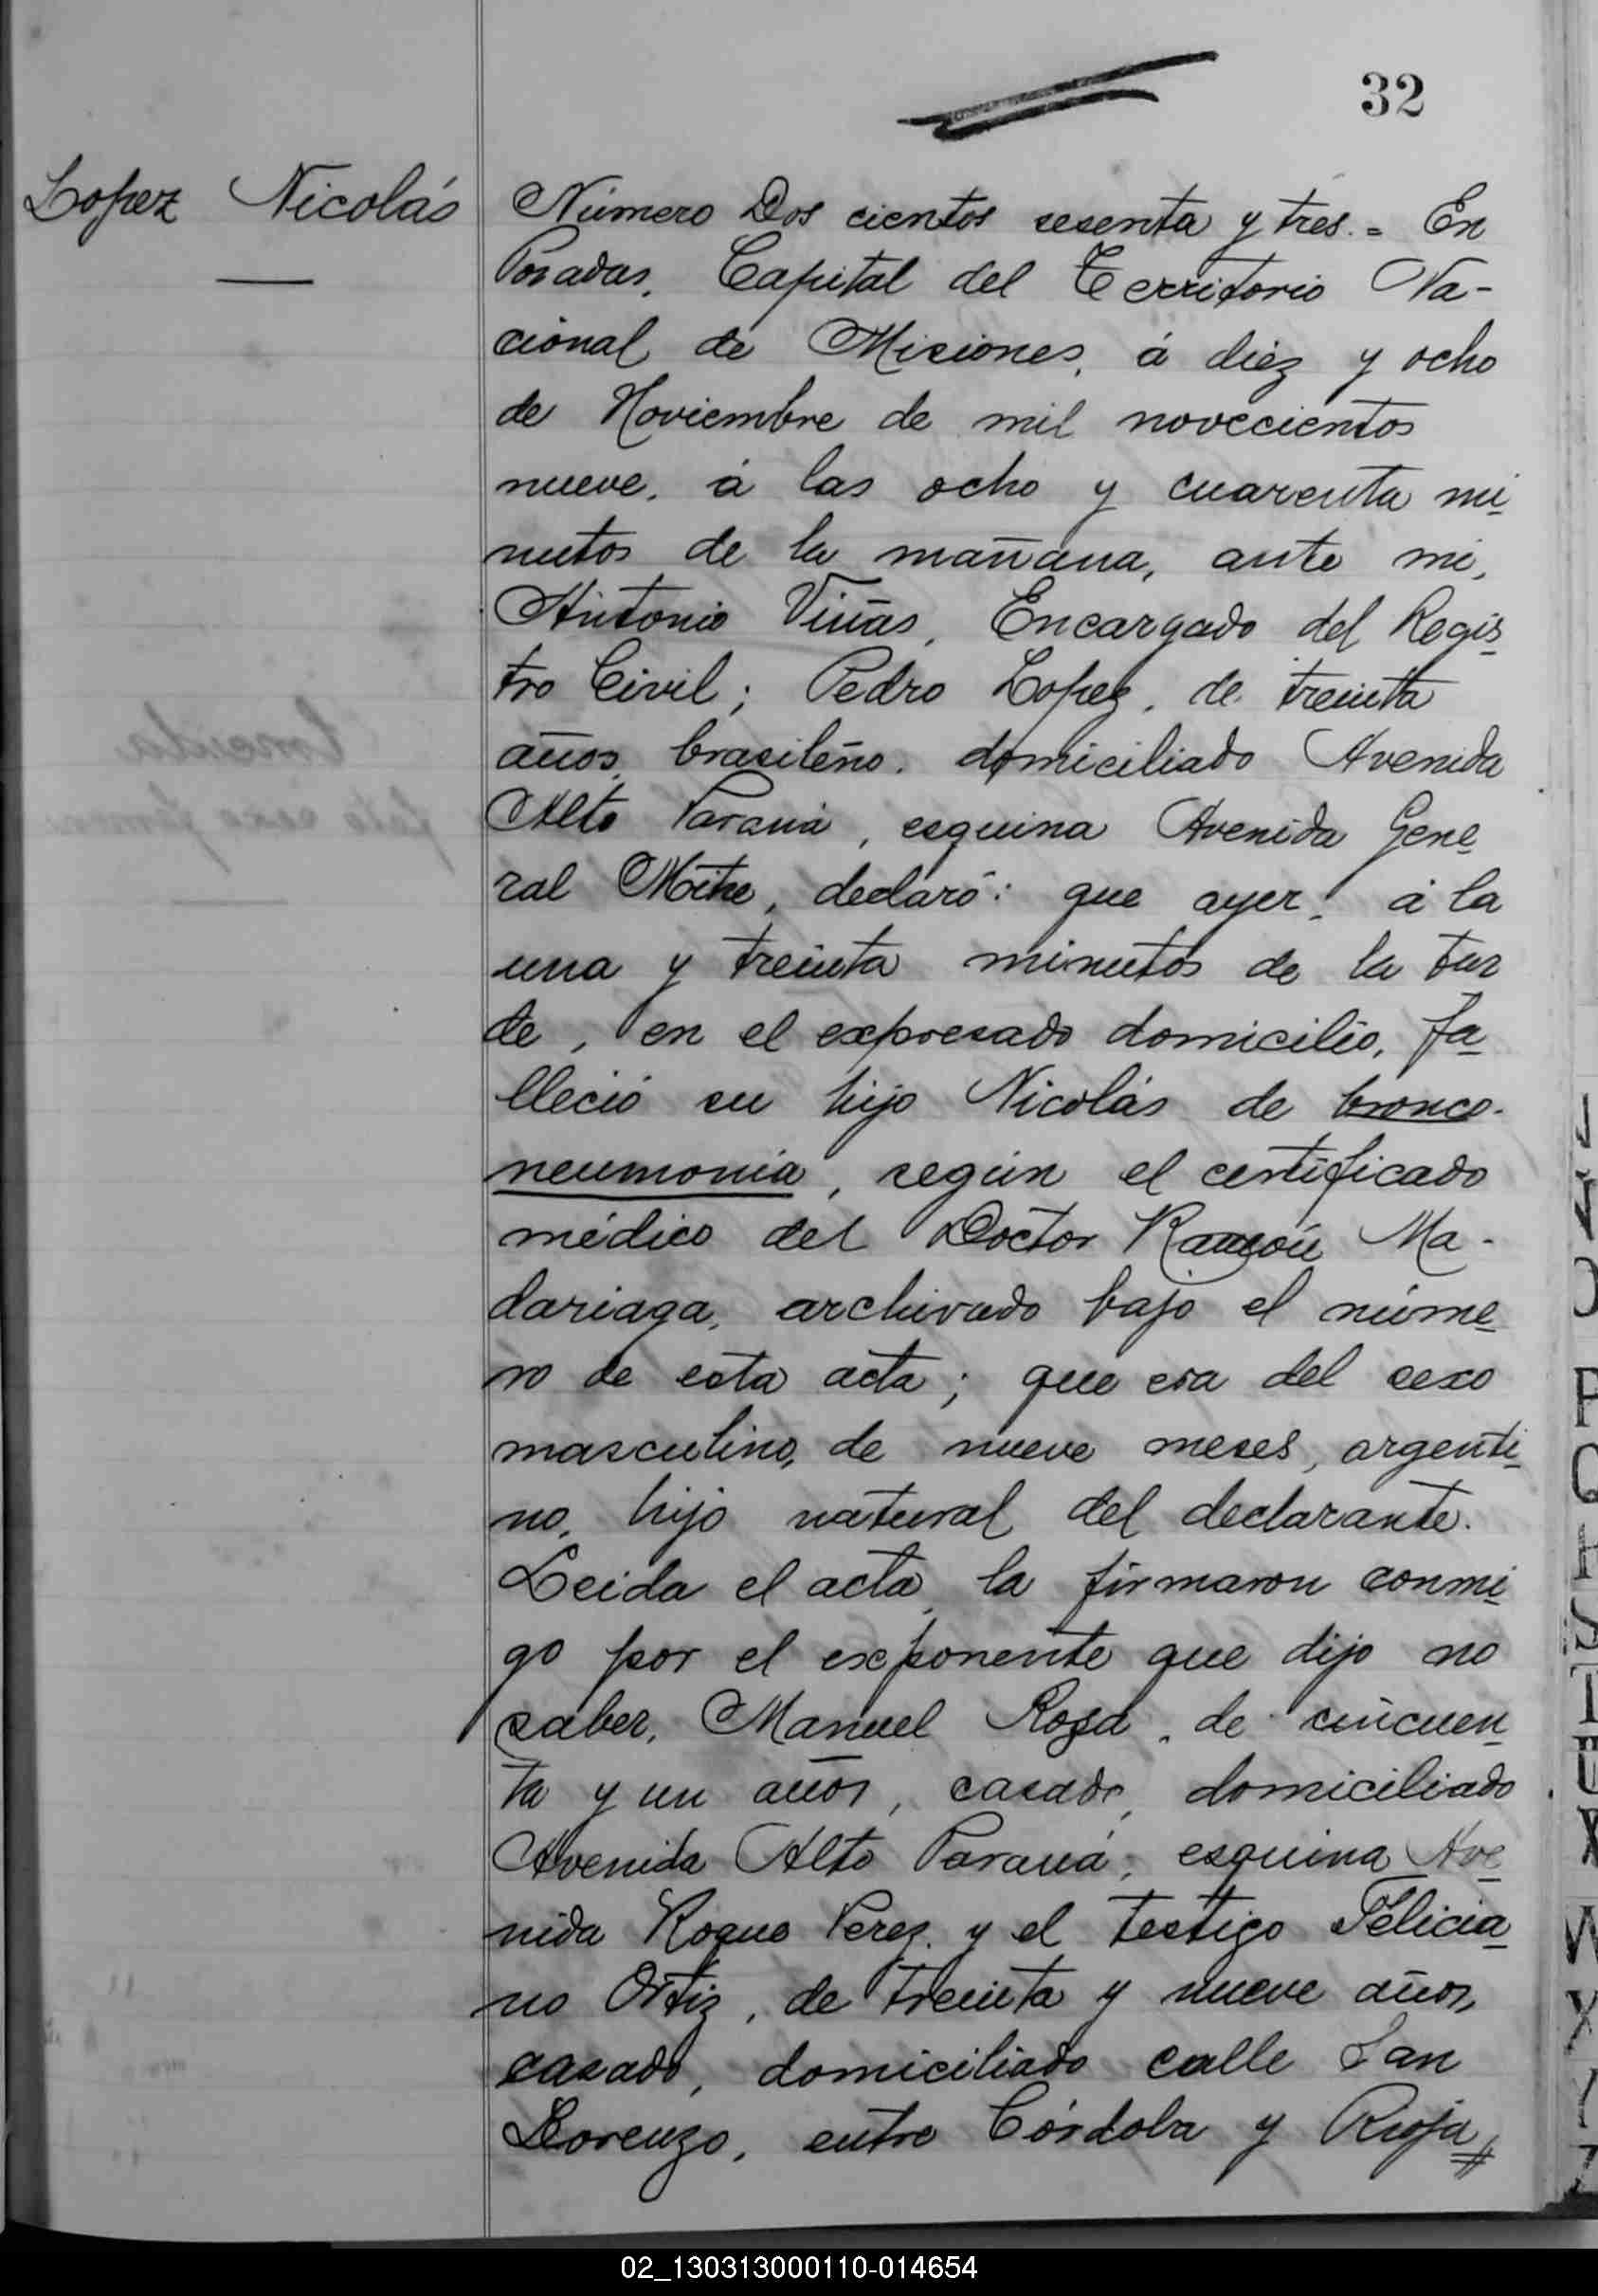 32
Lopez Nicolás
Número Dos cientos sesenta y tres.= En
Posadas, Capital del Territorio Na-
cional de Misiones, á diez y ocho
de Noviembre de mil novecientos
nueve, á las ocho y cuarenta mi
nutos de la mañana, ante mi,
Antonio Viñas, Encargado del Regis
tro Civil; Pedro Lopez, de treinta
años, brasileño, domiciliado Avenida
Alto Paraná, esquina Avenida Gene
ral Mitre, declaró: que ayer, á la
una y treinta minutos de la tar
de, en el expresado domicilio, fa
lleció su hijo Nicolás de bronco-
neumonia, según el certificado
médico del Doctor Ramón Ma-
dariaga, archivado bajo el núme
ro de esta acta; que era del sexo
masculino, de nueve meses, argenti
no, hijo natural del declarante.
Leida el acta, la firmaron conmi
go por el exponente que dijo no
saber, Manuel Rosa, de cincuen
ta y un años, casado, domiciliado
Avenida Alto Paraná, esquina Ave
nida Roque Perez, y el testigo Felicia
no Ortiz, de treinta y nueve años,
casado, domiciliado calle San
Lorenzo, entre Córdoba y Rioja,
02_130313000110-014654